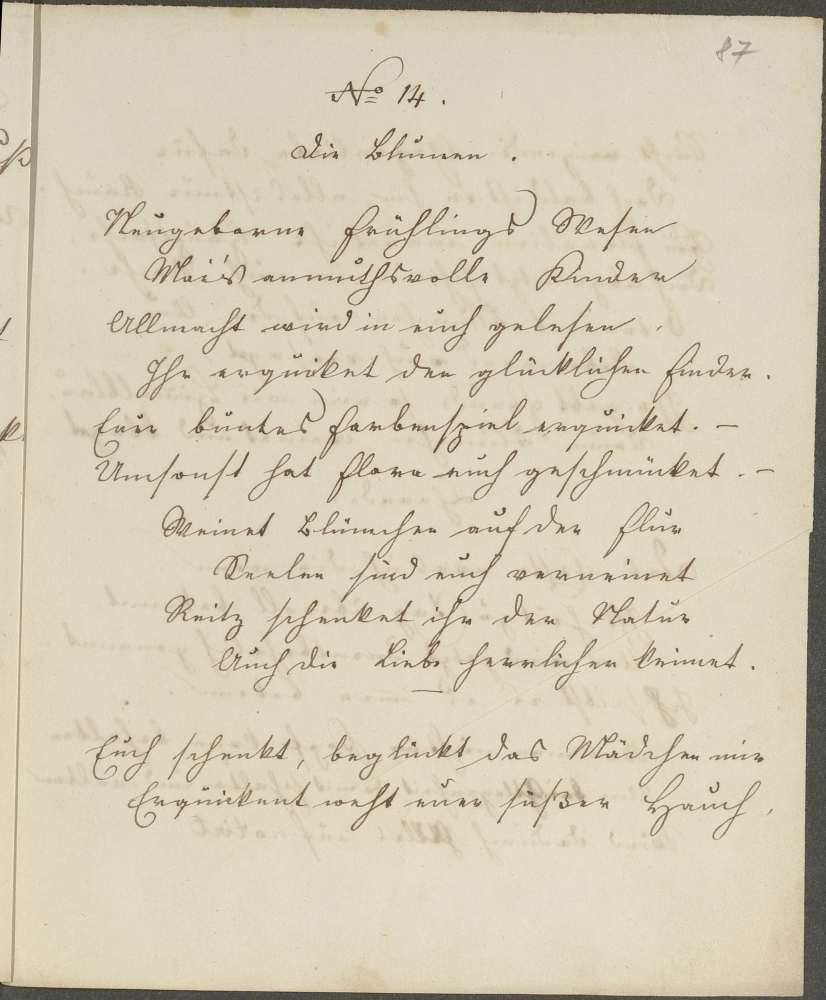 87
No 14.
Die Blumen.
Neugeborne Frühlings Wesen
Mai's anmuthsvolle Kinder
Allmacht wird in euch gelesen,
Ihr erquiket den glücklichen Finder.
Euer buntes Farbenspiel erquicket. —
Umsonst hat Flora euch geschmücket. —
Weinet Blümchen auf der Flur
Seelen sind euch verneinet
Reitz schenket ihr der Natur
Auch die Liebe herrlicher keimet.
Euch schenkt, beglückt das Mädchen mir
Erquickent weht euer süßer Hauch,